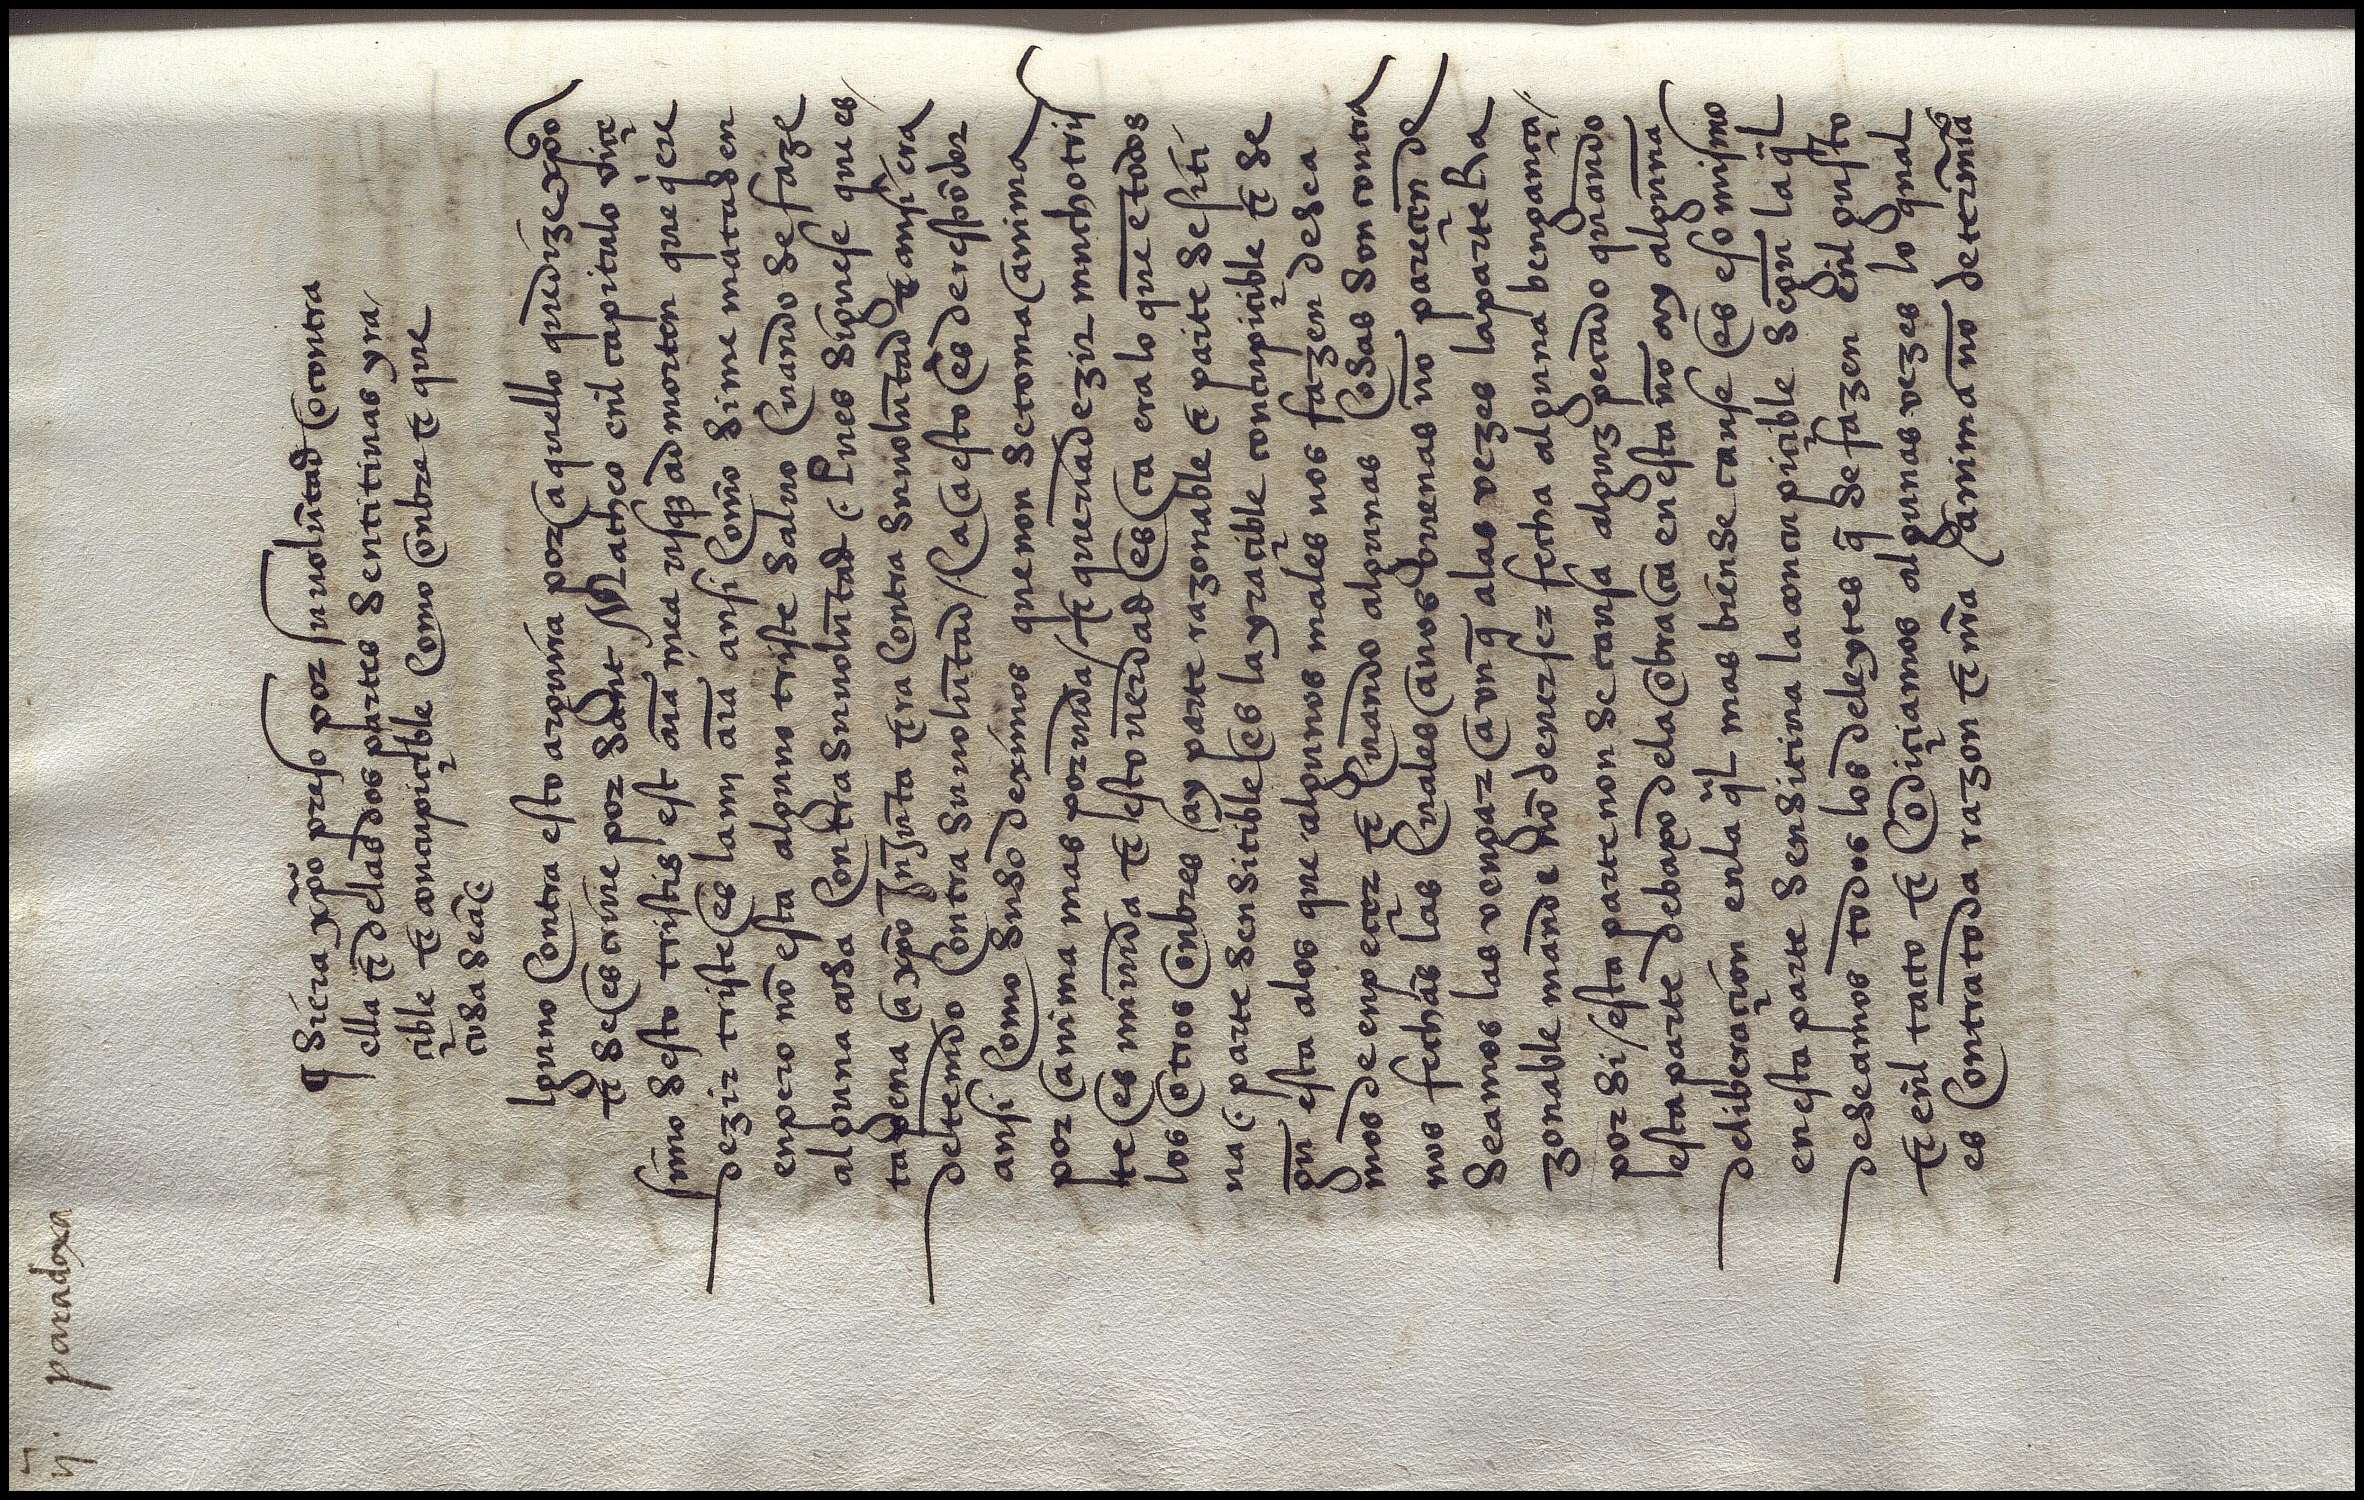 ij. paradoxa
¶ si era xp̃o preso por su volũtad o contra
ella & de las dos partes sentitiuas yra
çible & concupiçible como onbre & que
cosa sea
lguno contra esto arguira por aquello que dize xp̃o
& se escriue por sant matheo enl̃ capitulo viçe
simo sesto tristis est aĩa mea usq̃ ad mortem que q̇ere
dezir triste es la mj aĩa ansi como si me matasen
enpero nõ esta alguno triste saluo cuando se faze
alguna cosa contra su voluntad pues siguese que es
ta pena a xp̃o Injusta & era contra su voluntad & ansi era
detenido contra su voluntad / a esto es de respõder
ansi como suso deximos que non se toma anima
por anima mas por vida / & que vida dezir mucho tris
te es mi vida & esto verdad es ca era lo que e todos
los otros onbres ay parte razonable & parte sesiti
ua parte sensitible es la yraçible concupiçible & se
gũ esta a los que algunos males nos fazen desea
mos de enpeçer & cuando algunas cosas son contra
nos fechas las cuales a nos buenas no pareçen de
seamos las vengar aunq̃ a las vezes la parte Ra
zonable mande no deuer ser fecha alguna bengança
por si / esta parte non se causa algunt pecado quando
esta parte debaxo dela obra ca en esta nõ ay alguna
deliberaçion enla q̃l mas bien se cause es eso mismo
en esta parte sensitiua la concupiçible segun la q̃l
deseamos todos los deleytes q̃ se fazen enl̃ gusto
& enl̃ tacto & codiçiamos algunas vezes lo qual
es contra toda razon & nr̃a anima no determina